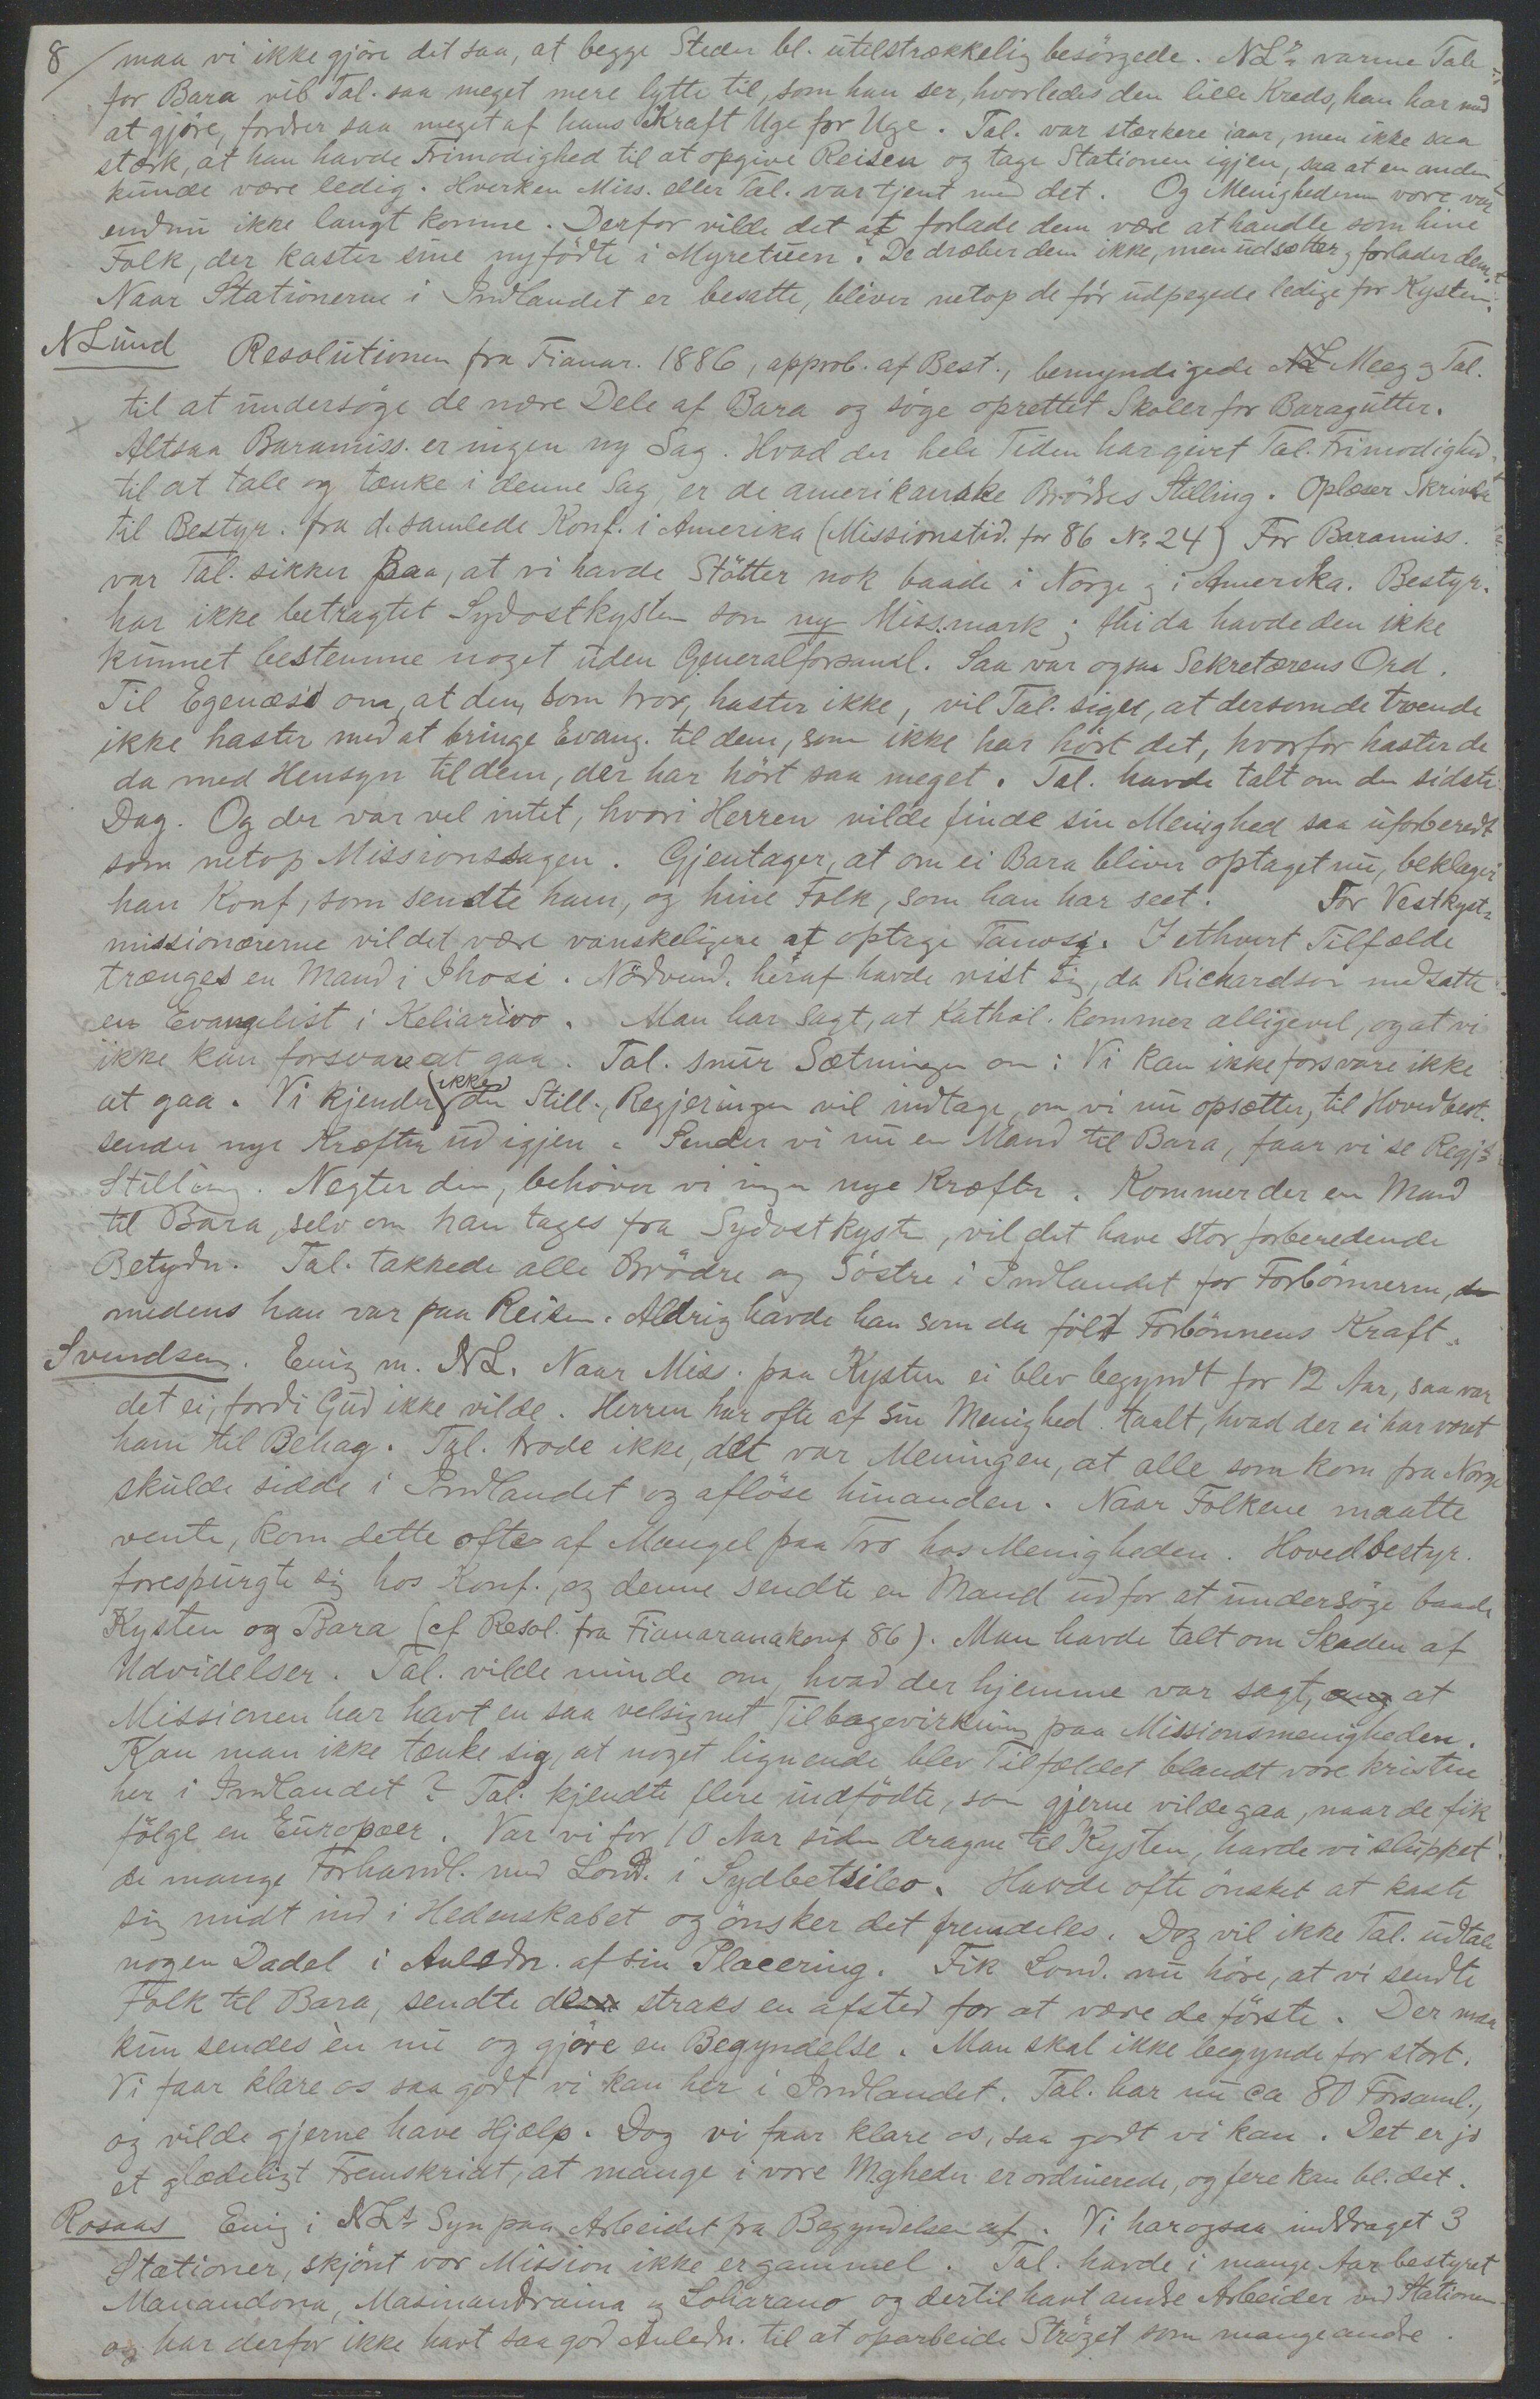 8 / maa vi ikke gjöre det saa, at begge Steder bl. utilstrækkelig besörgede. NLs varme Tale
for Bara vil Tal. saa meget mere lytte til, som han ser, hvorledes den lille Kreds, han har med
at gjöre, fordrer saa meget af hans Kraft Uge for Uge. Tal. var stærkere iaar, men ikke saa
stærk, at han havde Frimodighed til at opgive Reisen og tage Stationen igjen, saa at en anden
kunde være ledig. Hverken Miss. eller Tal. var tjent med det. Og Menighederne vore var
endnu ikke langt komne. Derfor vilde det at forlade dem være at handle som hine
Folk, der kaster sine nyfödte i Myretuen. De dræber dem ikke, men udsætter og forlader dem.
Naar Stationerne i Indlandet er besatte, bliver netop de för udpegede ledige for Kysten.
NLund Resolutionen fra Fianar. 1886, approb. af Best., bemyndigede Meeg og Tal.
til at undersöge de nære Dele af Bara og söge oprettet Skoler for Baragutter.
Altsaa Baramiss. er ingen ny Sag. Hvad der hele Tiden har givet Tal. Frimodighed
til at tale og tænke i denne Sag, er de amerikanske Brödres Stilling. Oplæser Skrivelse
til Bestyr. fra d. samlede Konf. i Amerika (Missionstid. for 86 No 24) For Baramiss.
var Tal. sikker paa, at vi havde Stötter nok baade i Norge og i Amerika. Bestyr.
har ikke betragtet Sydostkysten som ny Miss.mark; thi da havde den ikke
kunnet bestemme noget uden Generalforsaml. Saa var ogsaa Sekretærens Ord.
Til Egenæs's om, at den, som tror, haster ikke, vil Tal. sige, at dersom de troende
ikke haster med at bringe Evang. til dem, som ikke har hört det, hvorfor haster de
da med Hensyn til dem, der har hört saa meget. Tal. havde talt om den sidste
Dag. Og der var vel intet, hvori Herren vilde finde sin Menighed saa uforberedt
som netop Missionssagen. Gjentager, at om ei Bara bliver optaget nu, beklager
han Konf, som sendte ham, og hine Folk, som han har seet. For Vestkyst-
missionærerne vil det være vanskeligere at optage Tanosi. I ethvert Tilfælde
trænges en Mand i Ihosi. Nödvend. heraf havde vist sig, da Richardson nedsatte
en Evangelist i Keliarivo. Man har sagt, at Kathol. kommer alligevel, og at vi
ikke kan forsvare at gaa. Tal. snur Sætningen om: Vi kan ikke forsvare ikke
at gaa. Vi kjender (ikke) den Still., Regjeringen vil indtage, om vi nu opsætter, til Hovedbest.
sender nye Kræfter ud igjen. Sender vi nu en Mand til Bara, faar vi se Regjs
Stilling. Negter den, behöver vi ingen nye Kræfter. Kommer der en Mand
til Bara, selv om han tages fra Sydostkysten, vil det have stor forberedende
Betydn. Tal. takkede alle Brödre og Söstre i Indlandet for Forbönnerne,
medens han var paa Reisen. Aldrig havde han som da fölt Forbönnens Kraft.
Svendsen. Enig m. NL. Naar Miss. paa Kysten ei blev begyndt for 12 Aar, saa var
det ei, fordi Gud ikke vilde. Herren har ofte af sin Menighed taalt, hvad der ei har været
ham til Behag. Tal. trode ikke, det var Meningen, at alle som kom fra Norge
skulde sidde i Indlandet og aflöse hinanden. Naar Folkene maatte
vente, kom dette ofte af Mangel paa Tro hos Menigheden. Hovedbestyr.
forespurgte sig hos Konf., og denne sendte en Mand ud for at undersöge baade
Kysten og Bara (cf Resol. fra Fianaranakonf 86). Man havde talt om Skaden af
Udvidelser. Tal. vilde minde om, hvad der hjemme var sagt, at
Missionen har havt en saa velsignet Tilbagevirkning paa Missionsmenigheden.
Kan man ikke tænke sig, at noget lignende blev Tilfældet blandt vore kristne
her i Indlandet? Tal. kjendte flere indfödte, som gjerne vilde gaa, naar de fik
fölge en Europæer. Var vi for 10 Aar siden dragne til Kysten, havde vi sluppet
de mange Forhandl. med Lond. i Sydbetsileo. Havde ofte önsket at kaste
sig midt ind i Hedenskabet og önsker det fremdeles. Dog vil ikke Tal. udtale
nogen Dadel i Anledn. af sin Placering. Fik Lond. nu höre, at vi sendte
Folk til Bara, sendte de straks en afsted for at være de förste. Der maa
kun sendes èn nu og gjöre en Begyndelse. Man skal ikke begynde for stort.
Vi faar klare os saa godt vi kan her i Indlandet. Tal. har nu ca 80 Forsaml.,
og vilde gjerne have Hjælp. Dog vi faar klare os, saa godt vi kan. Det er jo
et glædeligt Fremskridt, at mange i vore Mgheder er ordinerede, og fere kan bl. det.
Rosaas Enig i NLs Syn paa Arbeidet fra Begyndelsen af. Vi har ogsaa inddraget 3
Stationer, skjönt vor Mission ikke er gammel. Tal. havde i mange Aar bestyret
Manandona, Masinandraina og Loharano og dertil havt andre Arbeider ved Stationen
og har derfor ikke havt saa god Anledn. til at oparbeide Ströget som mange andre.